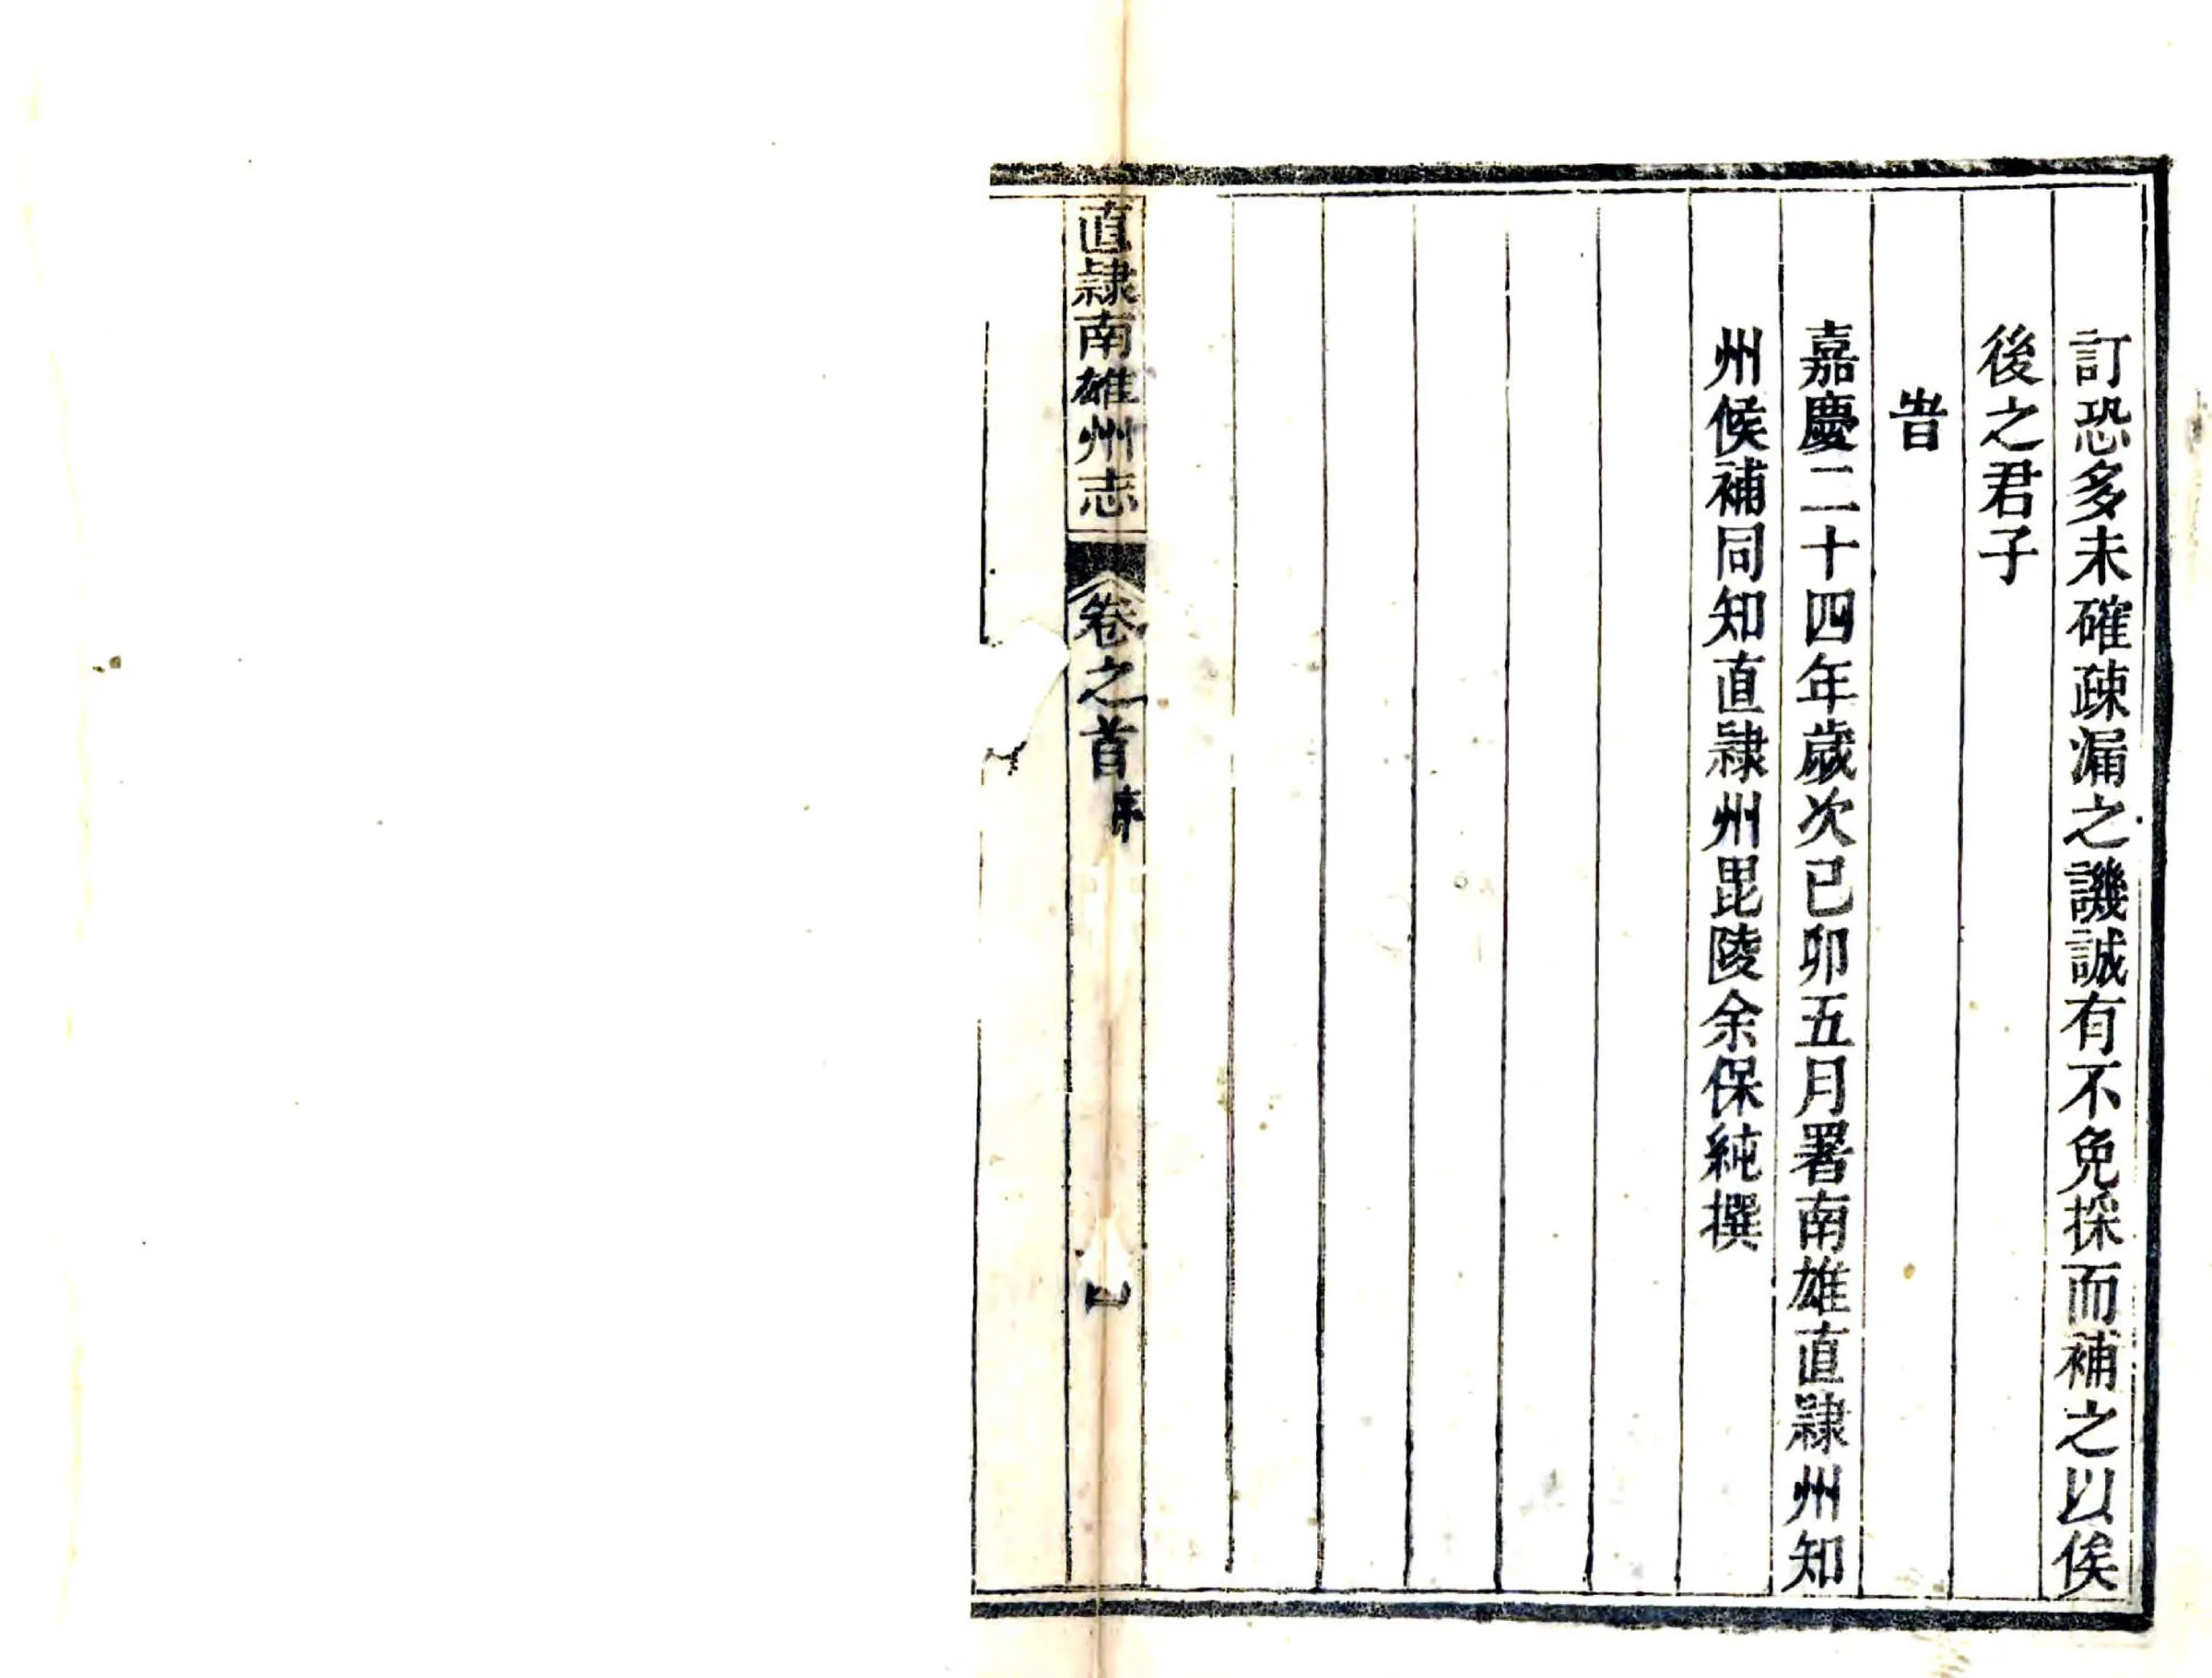 訂恐多未確疎漏之譏誠有不免採而補之以俟
後之君子
旹
嘉慶二十四年歲次己卯五月署南雄直隸州知
州候補同知直隸州毘陵余保純撰
直隸南雄州志
卷之首
序